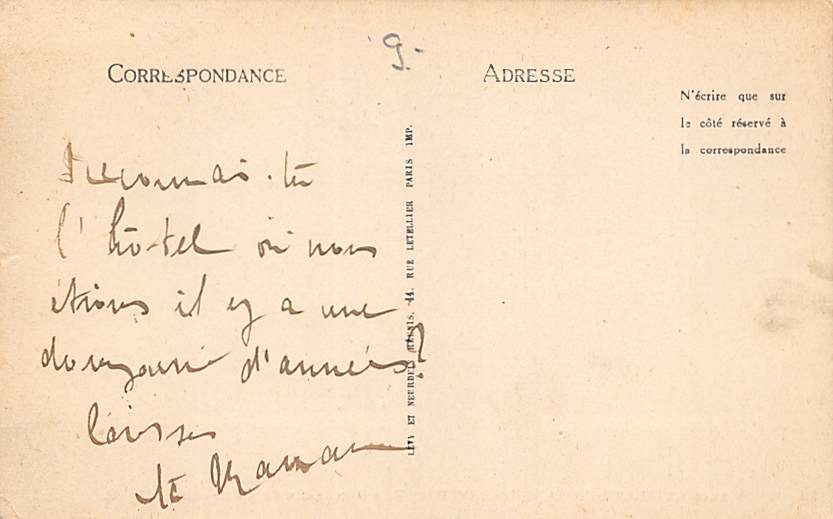 9.
CORRESPONDANCE
ADRESSE
N'écrire que sur
le côté réservé à
la correspondance
LÉVY ET NEURDEIN RÉUNIS, 44, RUE LETELLIER PARIS IMP.
Reconnais-tu
l'hôtel où nous
étions il y a une
douzaine d'années?